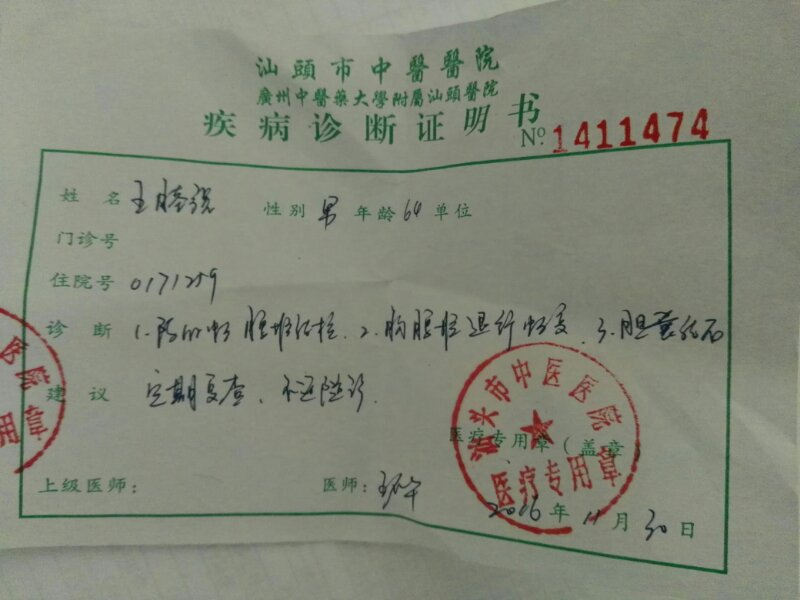 汕頭市中醫醫院
廣州中醫藥大學附屬汕頭醫院
疾病诊断证明书
№: 1411474
姓名 王 性别 男 年龄 64 单位
门诊号
住院号 0171259
诊断 1. 2. 胸腰椎退行 3. 胆囊结石
建议 定期复查、不适随诊.
医疗专用章(盖章)
汕头市中医医院
医疗专用章
上级医师: 医师: 王
2016年11月30日
医院
用章